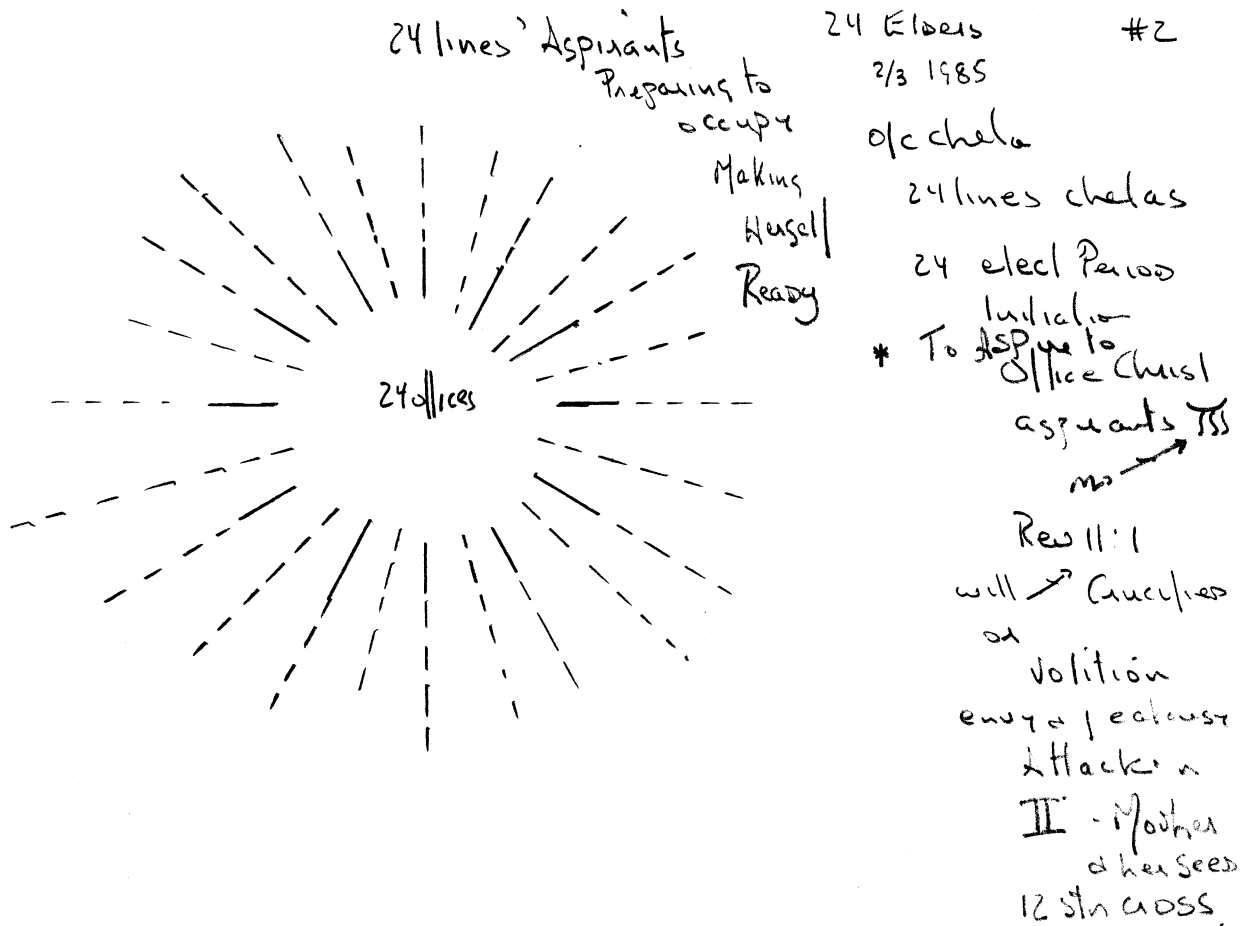 24 lines' Aspirants
Preparing to
occupy
Making
Herself
Ready
24 offices
24 Elders #2
2/3 1985
o/c chela
24 lines chelas
24 elect Period
Initiation
* To Aspire to
Office Christ
aspirants
Rev 11:1
will → Crucified
or
Volition
envy & jealousy
Attack in
II - Mother
& her seed
12 stn cross